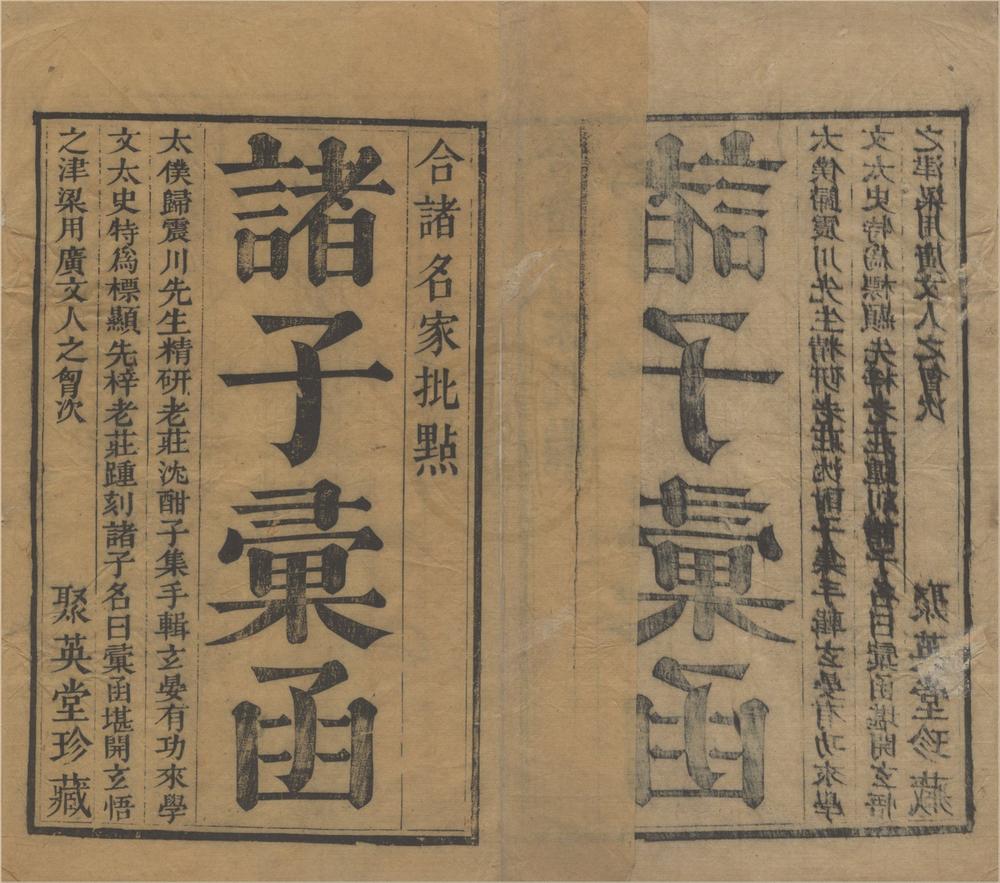 合諸名家批點
諸子彙函
太僕歸震川先生精研老莊沈酣子集手輯玄晏有功來學
文太史特為標顯先梓老莊踵刻諸子名曰彙函堪開玄悟
之津梁用廣文人之胷次
聚英堂珍藏